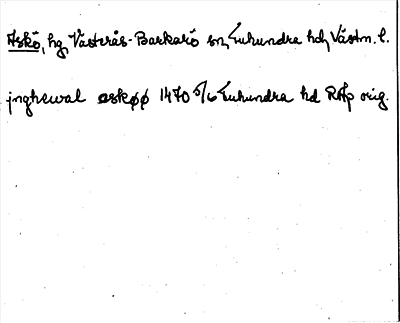 Askö, hg, Västerås-Barkarö sn, Tuhundra hd, Västm. l.
jnghewal askøø 1470 5/6 Tuhundra hd RAp orig.